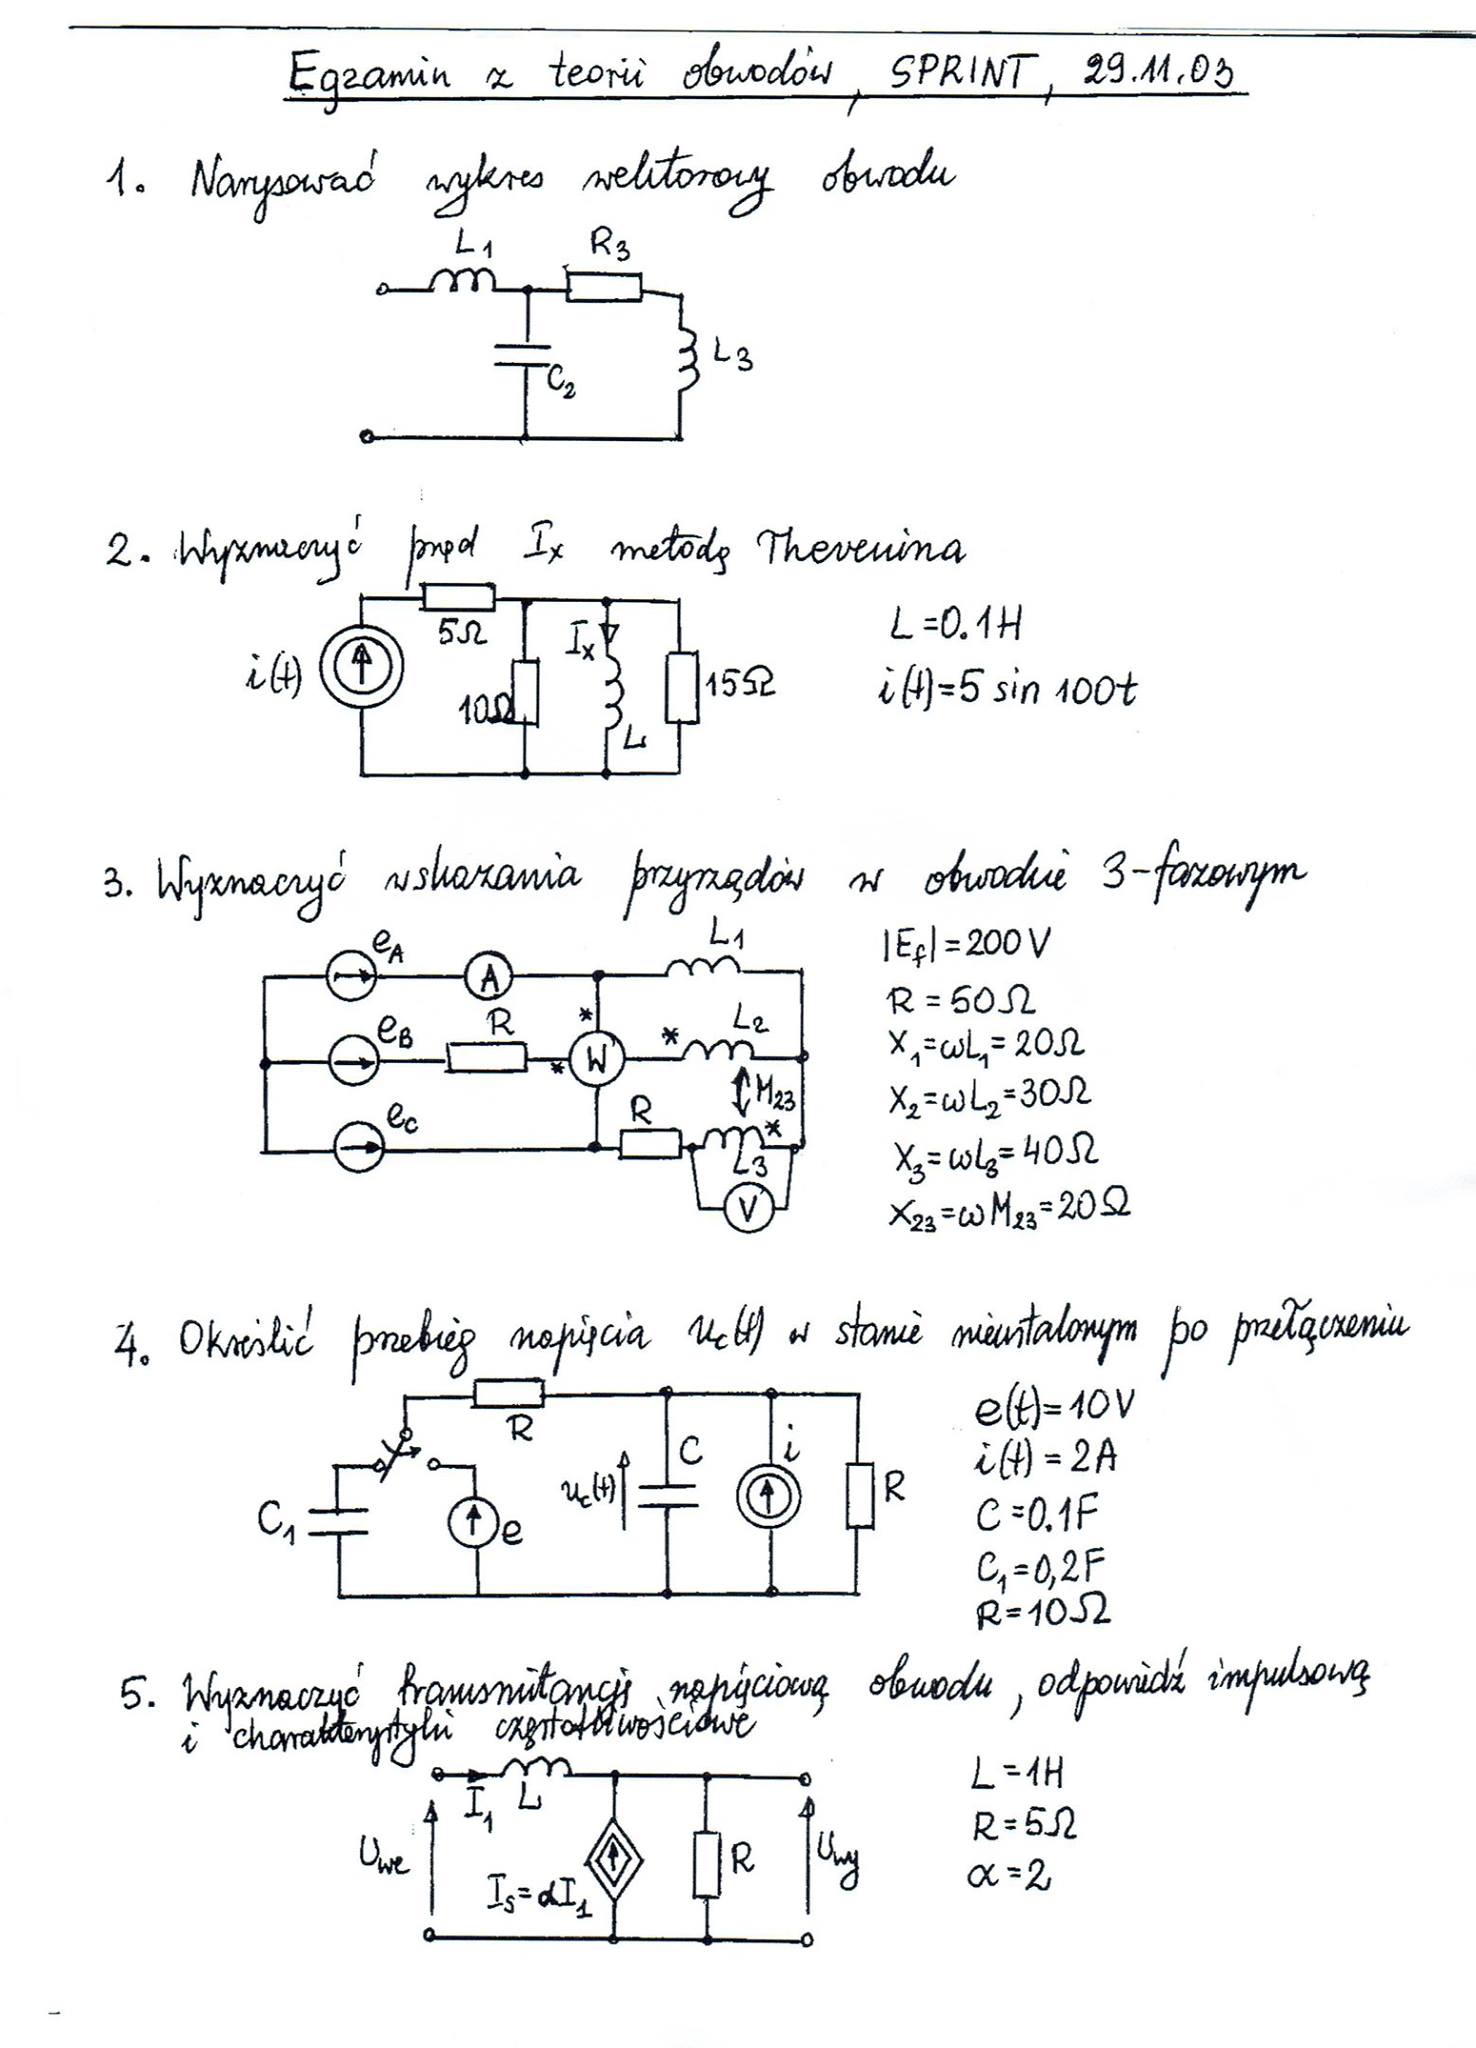 Egzamin z teorii obwodów, SPRINT, 29.11.03
1. Narysować wykres wektorowy obwodu
L1 R3
C2 L3
2. Wyznaczyć prąd Ix metodą Thevenina
i(t) 5Ω 10Ω Ix L 15Ω
L=0.1H
i(t)=5 sin 100t
3. Wyznaczyć wskazania przyrządów w obwodzie 3-fazowym
eA A L1
eB R * * W * L2
M23
eC R * L3
V
|Ef|=200V
R=50Ω
X1=ωL1=20Ω
X2=ωL2=30Ω
X3=ωL3=40Ω
X23=ωM23=20Ω
4. Określić przebieg napięcia uc(t) w stanie nieustalonym po przełączeniu
R
C1 e uc(t) C i R
e(t)=10V
i(t)=2A
C=0.1F
C1=0,2F
R=10Ω
5. Wyznaczyć transmitancję napięciową obwodu, odpowiedź impulsową
i charakterystyki częstotliwościowe
I1 L
Uwe Is=αI1 R Uwy
L=1H
R=5Ω
α=2